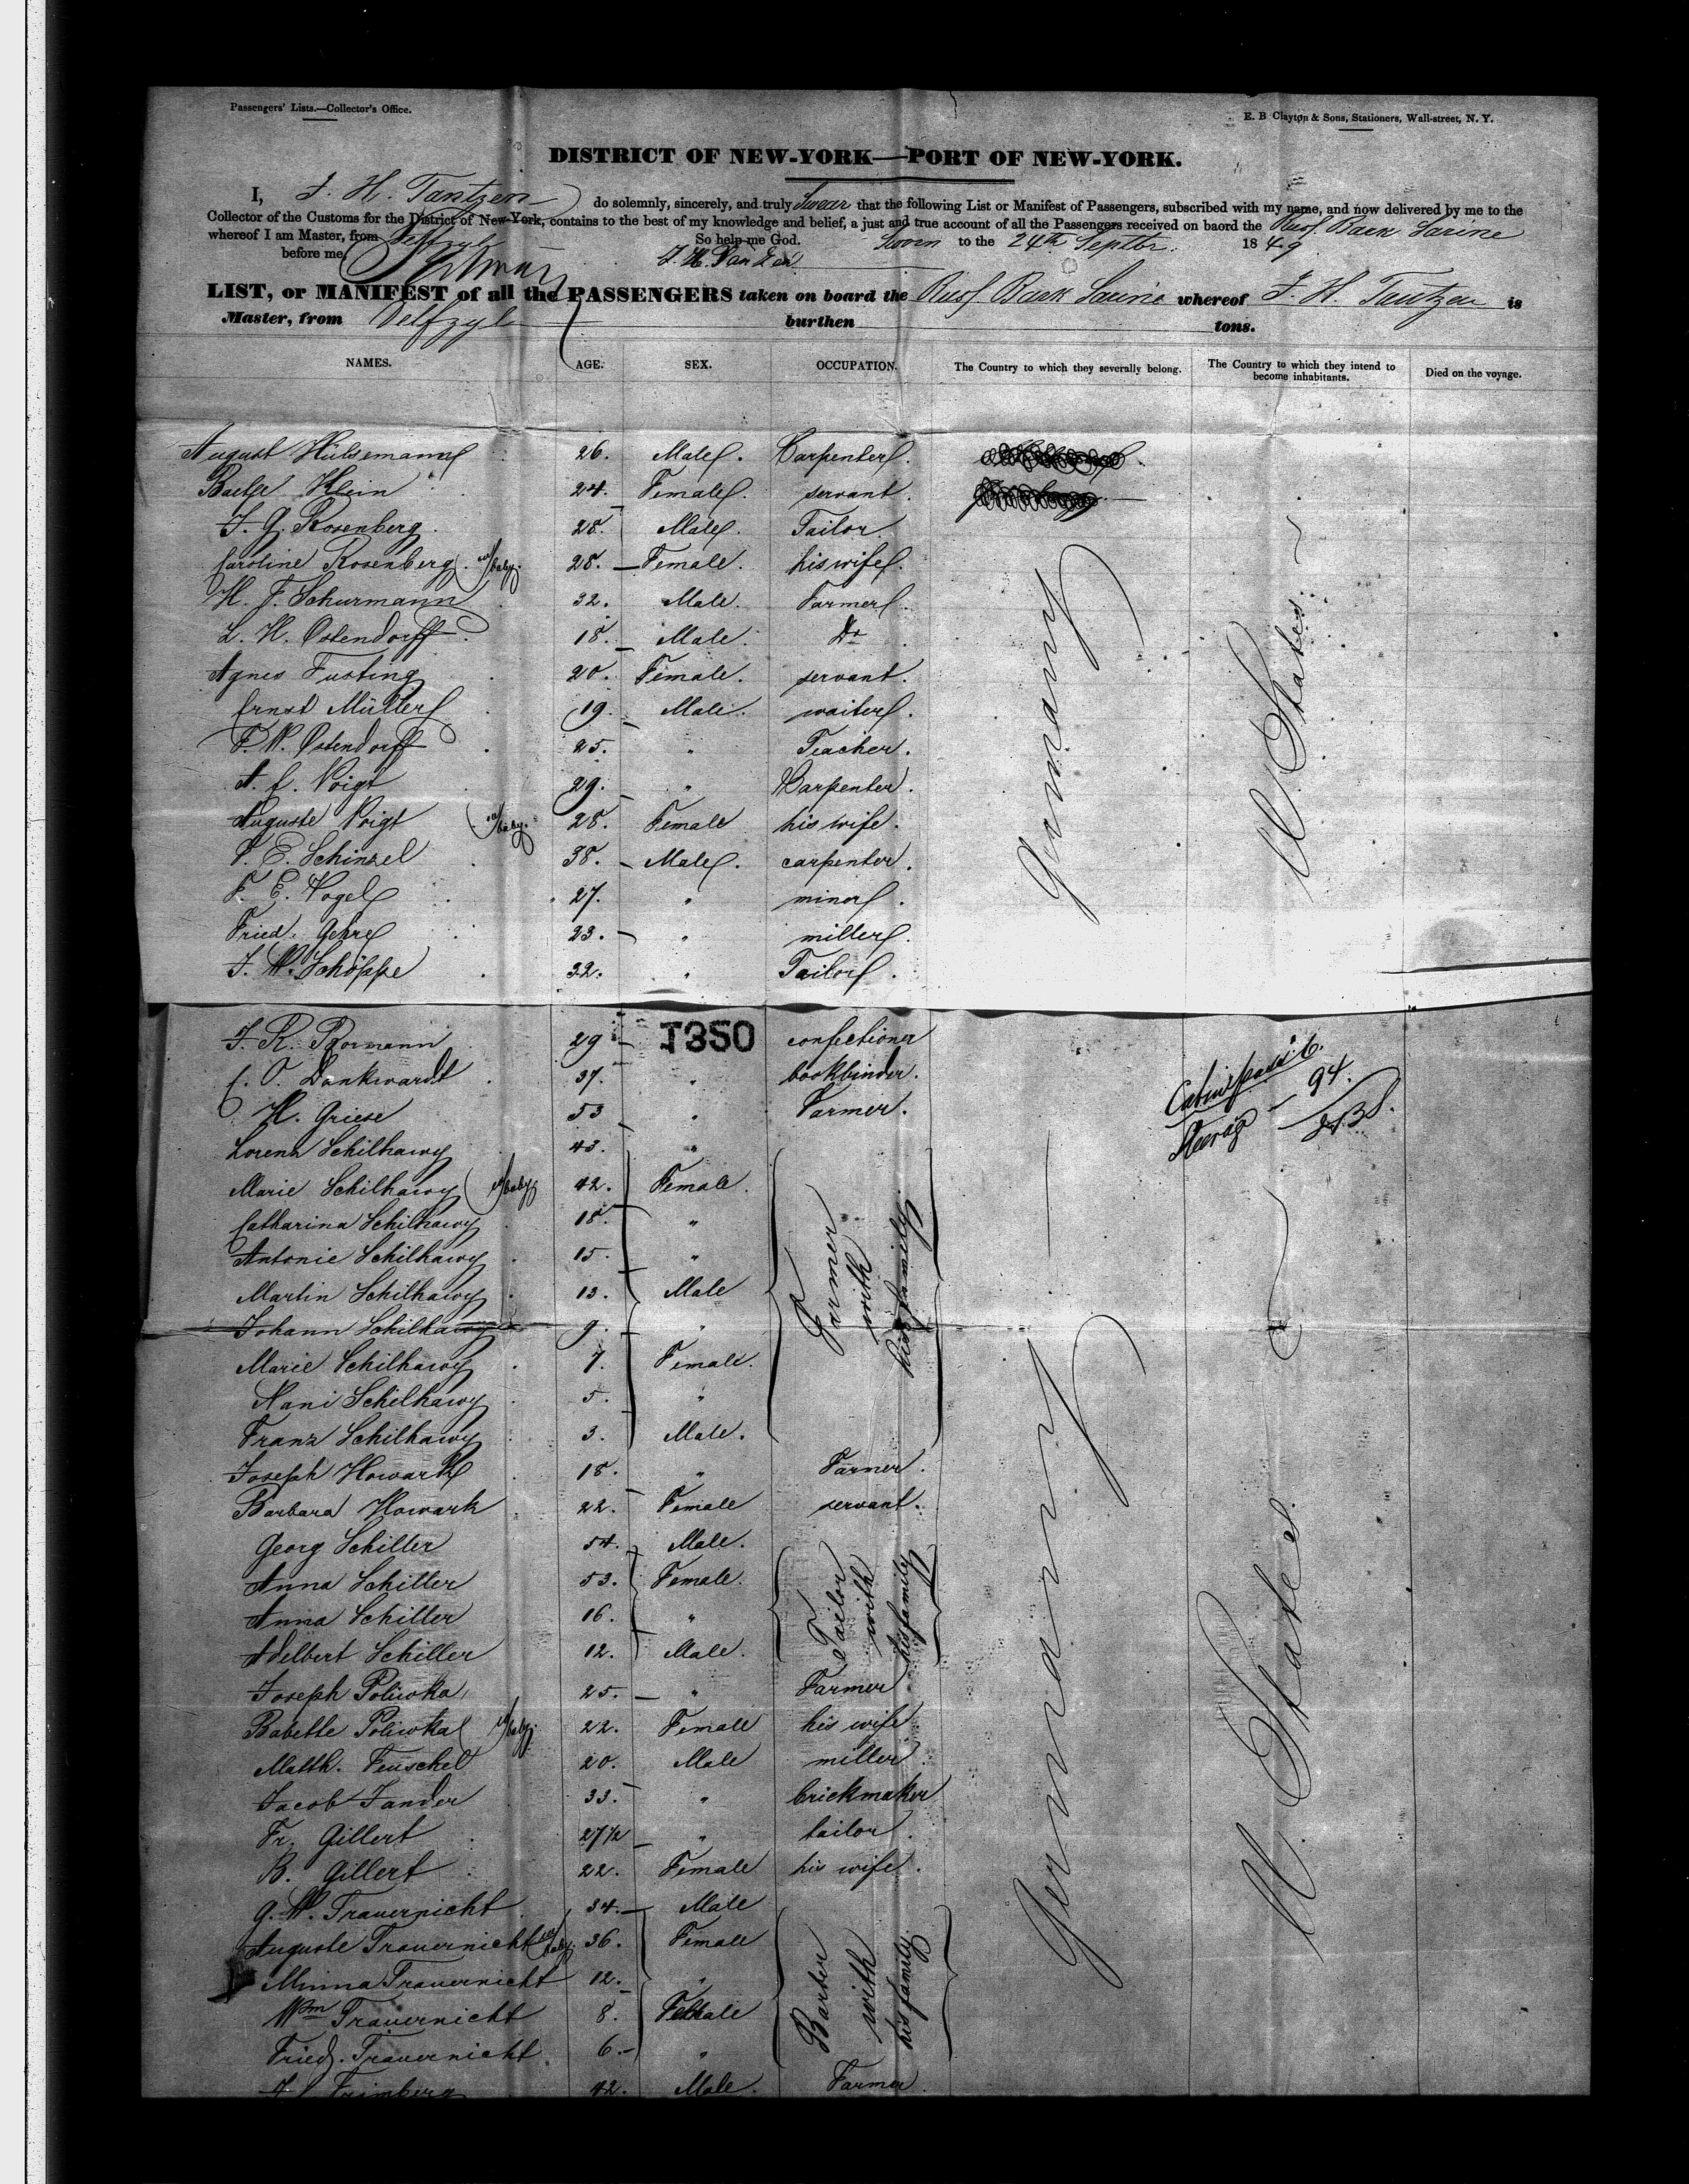 Passengers' Lists.—Collector's Office.
E. B. Clayton & Sons, Stationers, Wall-street, N. Y.
DISTRICT OF NEW-YORK—PORT OF NEW-YORK.
I, J. H. Tantzen do solemnly, sincerely, and truly Swear that the following List or Manifest of Passengers, subscribed with my name, and now delivered by me to the
Collector of the Customs for the District of New-York, contains to the best of my knowledge and belief, a just and true account of all the Passengers received on baord the Russ Bark
whereof I am Master, from Delfzyl So help me God. Sworn to the 24th Septbr. 1849
before me,
LIST, or MANIFEST of all the PASSENGERS taken on board the Russ Bark whereof J. H. Tantzen is
Master, from Delfzyl burthen tons.
NAMES. AGE. SEX. OCCUPATION. The Country to which they severally belong. The Country to which they intend to become inhabitants. Died on the voyage.
August Hülsemann 26. Male. Carpenter.
Klein 24. Female. servant.
J. G. Rosenberg 28. Male. Tailor.
Caroline Rosenberg. w/ baby. 28. Female. his wife.
H. J. Schurmann 32. Male. Farmer.
L. H. Ostendorff 18. Male. Do
Agnes Fusting 20. Female. servant.
Ernst Müller 19. Male. waiter.
F. W. Ostendorff 25. " Teacher.
A. C. Voigt 29. " Carpenter.
Auguste Voigt w/ baby. 28. Female his wife.
E. Schinzel 38. Male. carpenter.
F. E. Vogel 27. " miner.
Fried. Gehre 23. " miller.
J. W. Schöppe 32. " Tailor.
Germany
U States
J. R. Bormann 29 T350 confectioner
C. O. Dankwardt 37. " bookbinder.
H. Griese 53 " Farmer.
Cabin pass 6.
Steerage 94.
Lorenz Schilhawy 43. "
Marie Schilhawy w/ baby 42. Female.
Catharina Schilhawy 18. "
Antonie Schilhawy 15. "
Martin Schilhawy 13. Male
Johann Schilhawy 9. "
Marie Schilhawy 7. Female.
Nani Schilhawy 5. "
Franz Schilhawy 3. Male.
Farmer with his family
Joseph Howark 18. " Farmer.
Barbara Howark 22. Female servant.
Georg Schiller 54. Male.
Anna Schiller 53. Female.
Anna Schiller 16. "
Adelbert Schiller 12. Male.
Tailor with his family
Joseph Poliwka 25. " Farmer
Babette Poliwka w/ baby. 22. Female his wife
Matth. Feuschel 20. Male miller
Jacob Jander 33. " brickmaker
Fr. Gillert 27 1/2 " tailor.
B. Gillert 22. Female his wife.
G. W. Trauernicht 34. Male
Auguste Trauernicht w/ baby. 36. Female
Minna Trauernicht 12. "
Wm Trauernicht 8.
Fried. Trauernicht 6. "
with his family
Germany
U. States
42. Male. Farmer.